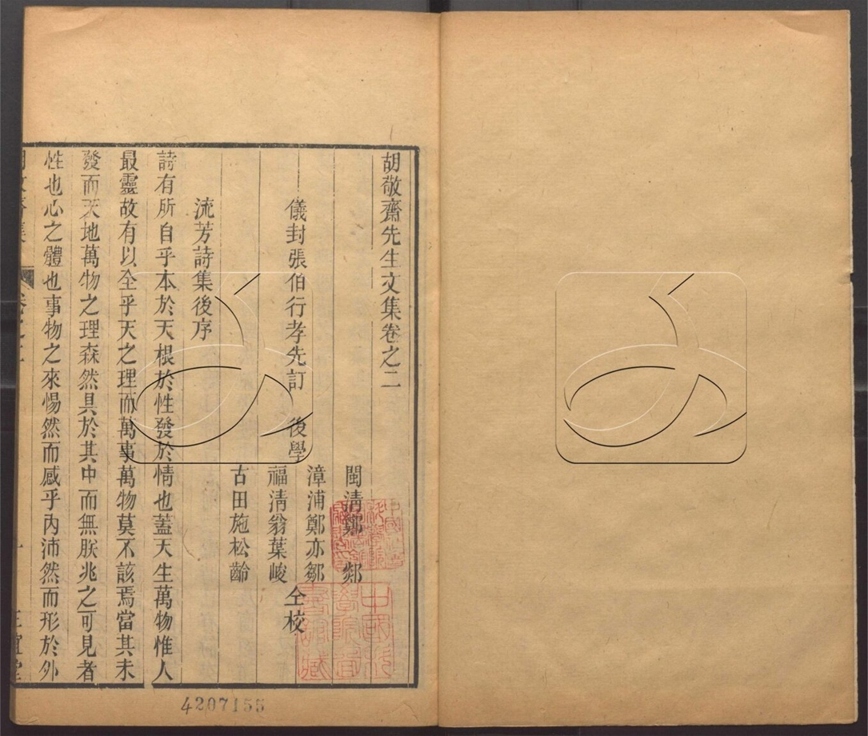 胡敬齋先生文集卷之二
閩清鄭　郯
儀封張伯行孝先訂　後學
漳浦鄭亦鄒
福清翁葉峻
古田施松齡
仝校
流芳詩集後序
詩有所自乎本於天根於性發於情也蓋天生萬物惟人
最靈故有以全乎天之理而萬事萬物莫不該焉當其未
發而天地萬物之理森然具於其中而無朕兆之可見者
性也心之體也事物之來惕然而感乎內沛然而形於外
卷之二
一
正誼堂
4207155